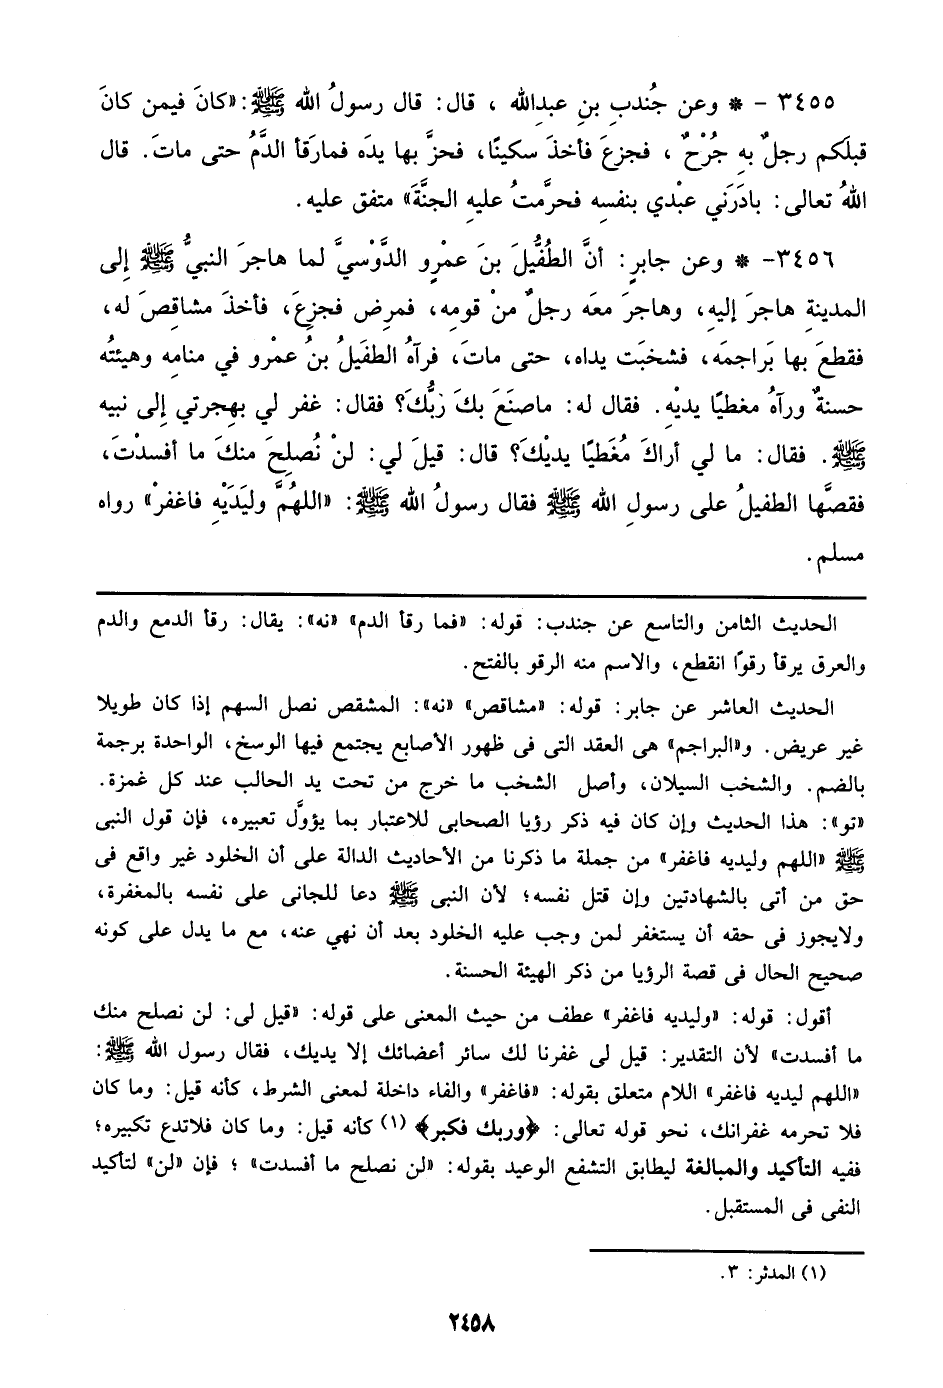 ٣٤٥٥ - * وعن جُندبِ بنِ عبدِالله ، قال: قال رسولُ الله ﷺ: «كانَ فيمن كانَ
قبلَكم رجلٌ بهِ جُرْحٌ ، فجزعَ فأخذَ سكينًا، فحزَّ بها يدَه فمارَقأ الدَّمُ حتى ماتَ. قال
اللهُ تعالى: بادَرَني عبْدي بنفسِه فحرَّمتُ عليهِ الجنَّةَ» متفق عليه.
٣٤٥٦- * وعن جابرٍ: أنَّ الطُفَّيلَ بنَ عمْرٍو الدَّوْسيَّ لما هاجرَ النبيُّ ﷺ إِلى
المدينةِ هاجرَ إليهِ، وهاجرَ معَه رجلٌ منْ قومِه، فمرِض فجزِعَ، فأخذَ مشاقصَ له،
فقطعَ بها بَراجمَه، فشخبَت يداه، حتى ماتَ، فرآهُ الطفَيلُ بنُ عمْرو في منامِه وهيئتُه
حسنةٌ ورآهُ مغطيًا يديْهِ. فقال له: ماصنَعَ بكَ رَبُّكَ؟ فقال: غفر لي بهِجرتي إِلى نبيه
ﷺ. فقال: ما لي أراكَ مُغَطيًا يديْكَ؟ قال: قيلَ لي: لنْ نُصلِحَ منكَ ما أفسدْتَ،
فقصَّها الطفيلُ على رسولِ الله ﷺ فقال رسولُ الله ﷺ: «اللهُمَّ وليَدَيْهِ فاغفرْ» رواه
مسلم.
الحديث الثامن والتاسع عن جندب: قوله: «فما رقأ الدم» «نه»: يقال: رقأ الدمع والدم
والعرق يرقأ رقوًا انقطع، والاسم منه الرقو بالفتح.
الحديث العاشر عن جابر: قوله: «مشاقص» «نه»: المشقص نصل السهم إذا كان طويلا
غير عريض. و«البراجم» هى العقد التى فى ظهور الأصابع يجتمع فيها الوسخ، الواحدة برجمة
بالضم. والشخب السيلان، وأصل الشخب ما خرج من تحت يد الحالب عند كل غمزة.
«تو»: هذا الحديث وإن كان فيه ذكر رؤيا الصحابى للاعتبار بما يؤوَّل تعبيره، فإن قول النبى
ﷺ «اللهم وليديه فاغفر» من جملة ما ذكرنا من الأحاديث الدالة على أن الخلود غير واقع فى
حق من أتى بالشهادتين وإن قتل نفسه؛ لأن النبى ﷺ دعا للجانى على نفسه بالمغفرة،
ولايجوز فى حقه أن يستغفر لمن وجب عليه الخلود بعد أن نهي عنه، مع ما يدل على كونه
صحيح الحال فى قصة الرؤيا من ذكر الهيئة الحسنة.
أقول: قوله: «وليديه فاغفر» عطف من حيث المعنى على قوله: «قيل لى: لن نصلح منك
ما أفسدت» لأن التقدير: قيل لى غفرنا لك سائر أعضائك إلا يديك، فقال رسول الله ﷺ:
«اللهم ليديه فاغفر» اللام متعلق بقوله: «فاغفر» والفاء داخلة لمعنى الشرط، كأنه قيل: وما كان
فلا تحرمه غفرانك، نحو قوله تعالى: ﴿وربك فكبر﴾ (١) كأنه قيل: وما كان فلاتدع تكبيره؛
ففيه التأكيد والمبالغة ليطابق التشفع الوعيد بقوله: «لن نصلح ما أفسدت» ؛ فإن «لن» لتأكيد
النفى فى المستقبل.
(١) المدثر: ٣.
٢٤٥٨